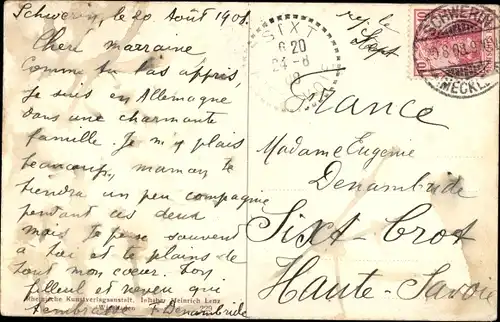 Schwerin, le 20 Août 1908.
Chère marraine
Comme tu l'as appris,
Je suis en Allemagne
dans une charmante
famille. Je m'y plais
beaucoup, maman te
tiendra un peu compagnie
pendant ces deux
mois Je pense souvent
à toi et te plains de
tout mon coeur. Ton
filleul et neveu qui
t'embrasse F. Denambride
Rheinische Kunstverlagsanstalt. Inhaber Heinrich Lenz
Wiesbaden 229
SIXT
6 20
24 - 8
08
rep. le
Sept
SCHWERIN
MECKL
10 10
France
Madame Eugenie
Denambride
Sixt-Crot
Haute-Savoie